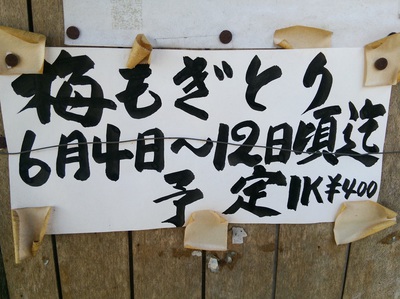 梅もぎとり
6月4日～12日頃迄
予定1K¥400